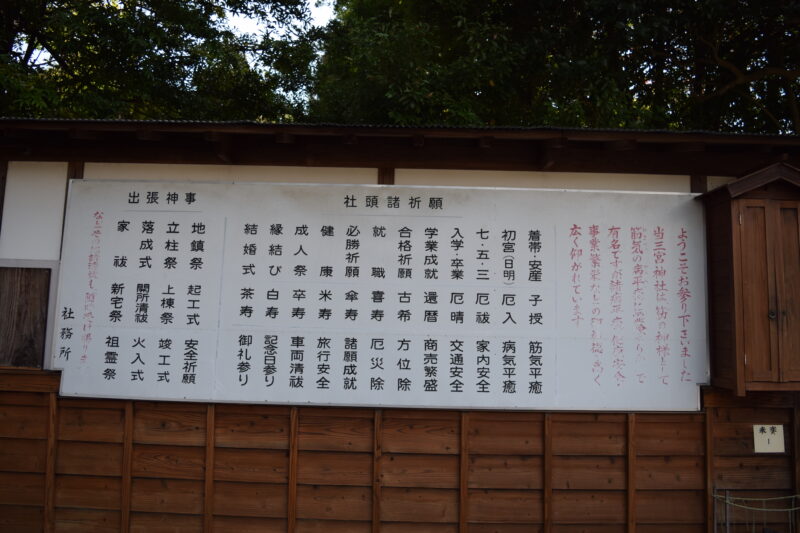 ようこそお参り下さいました
当三宮神社は筋の神様として
筋気の
有名ですが
事業繁栄などの
広く仰がれています
社頭諸祈願
着帯・安産 子授 筋気平癒
初宮(日明) 厄入 病気平癒
七・五・三 厄祓 家内安全
入学・卒業 厄晴 交通安全
学業成就 還暦 商売繁盛
合格祈願 古希 方位除
就職 喜寿 厄災除
必勝祈願 傘寿 諸願成就
健康 米寿 旅行安全
成人祭 卒寿 車両清祓
縁結び 白寿 記念日参り
結婚式 茶寿 御礼参り
出張神事
地鎮祭 起工式 安全祈願
立柱祭 上棟祭 竣工式
落成式 開所清祓 火入式
家祓 新宅祭 祖霊祭
社務所